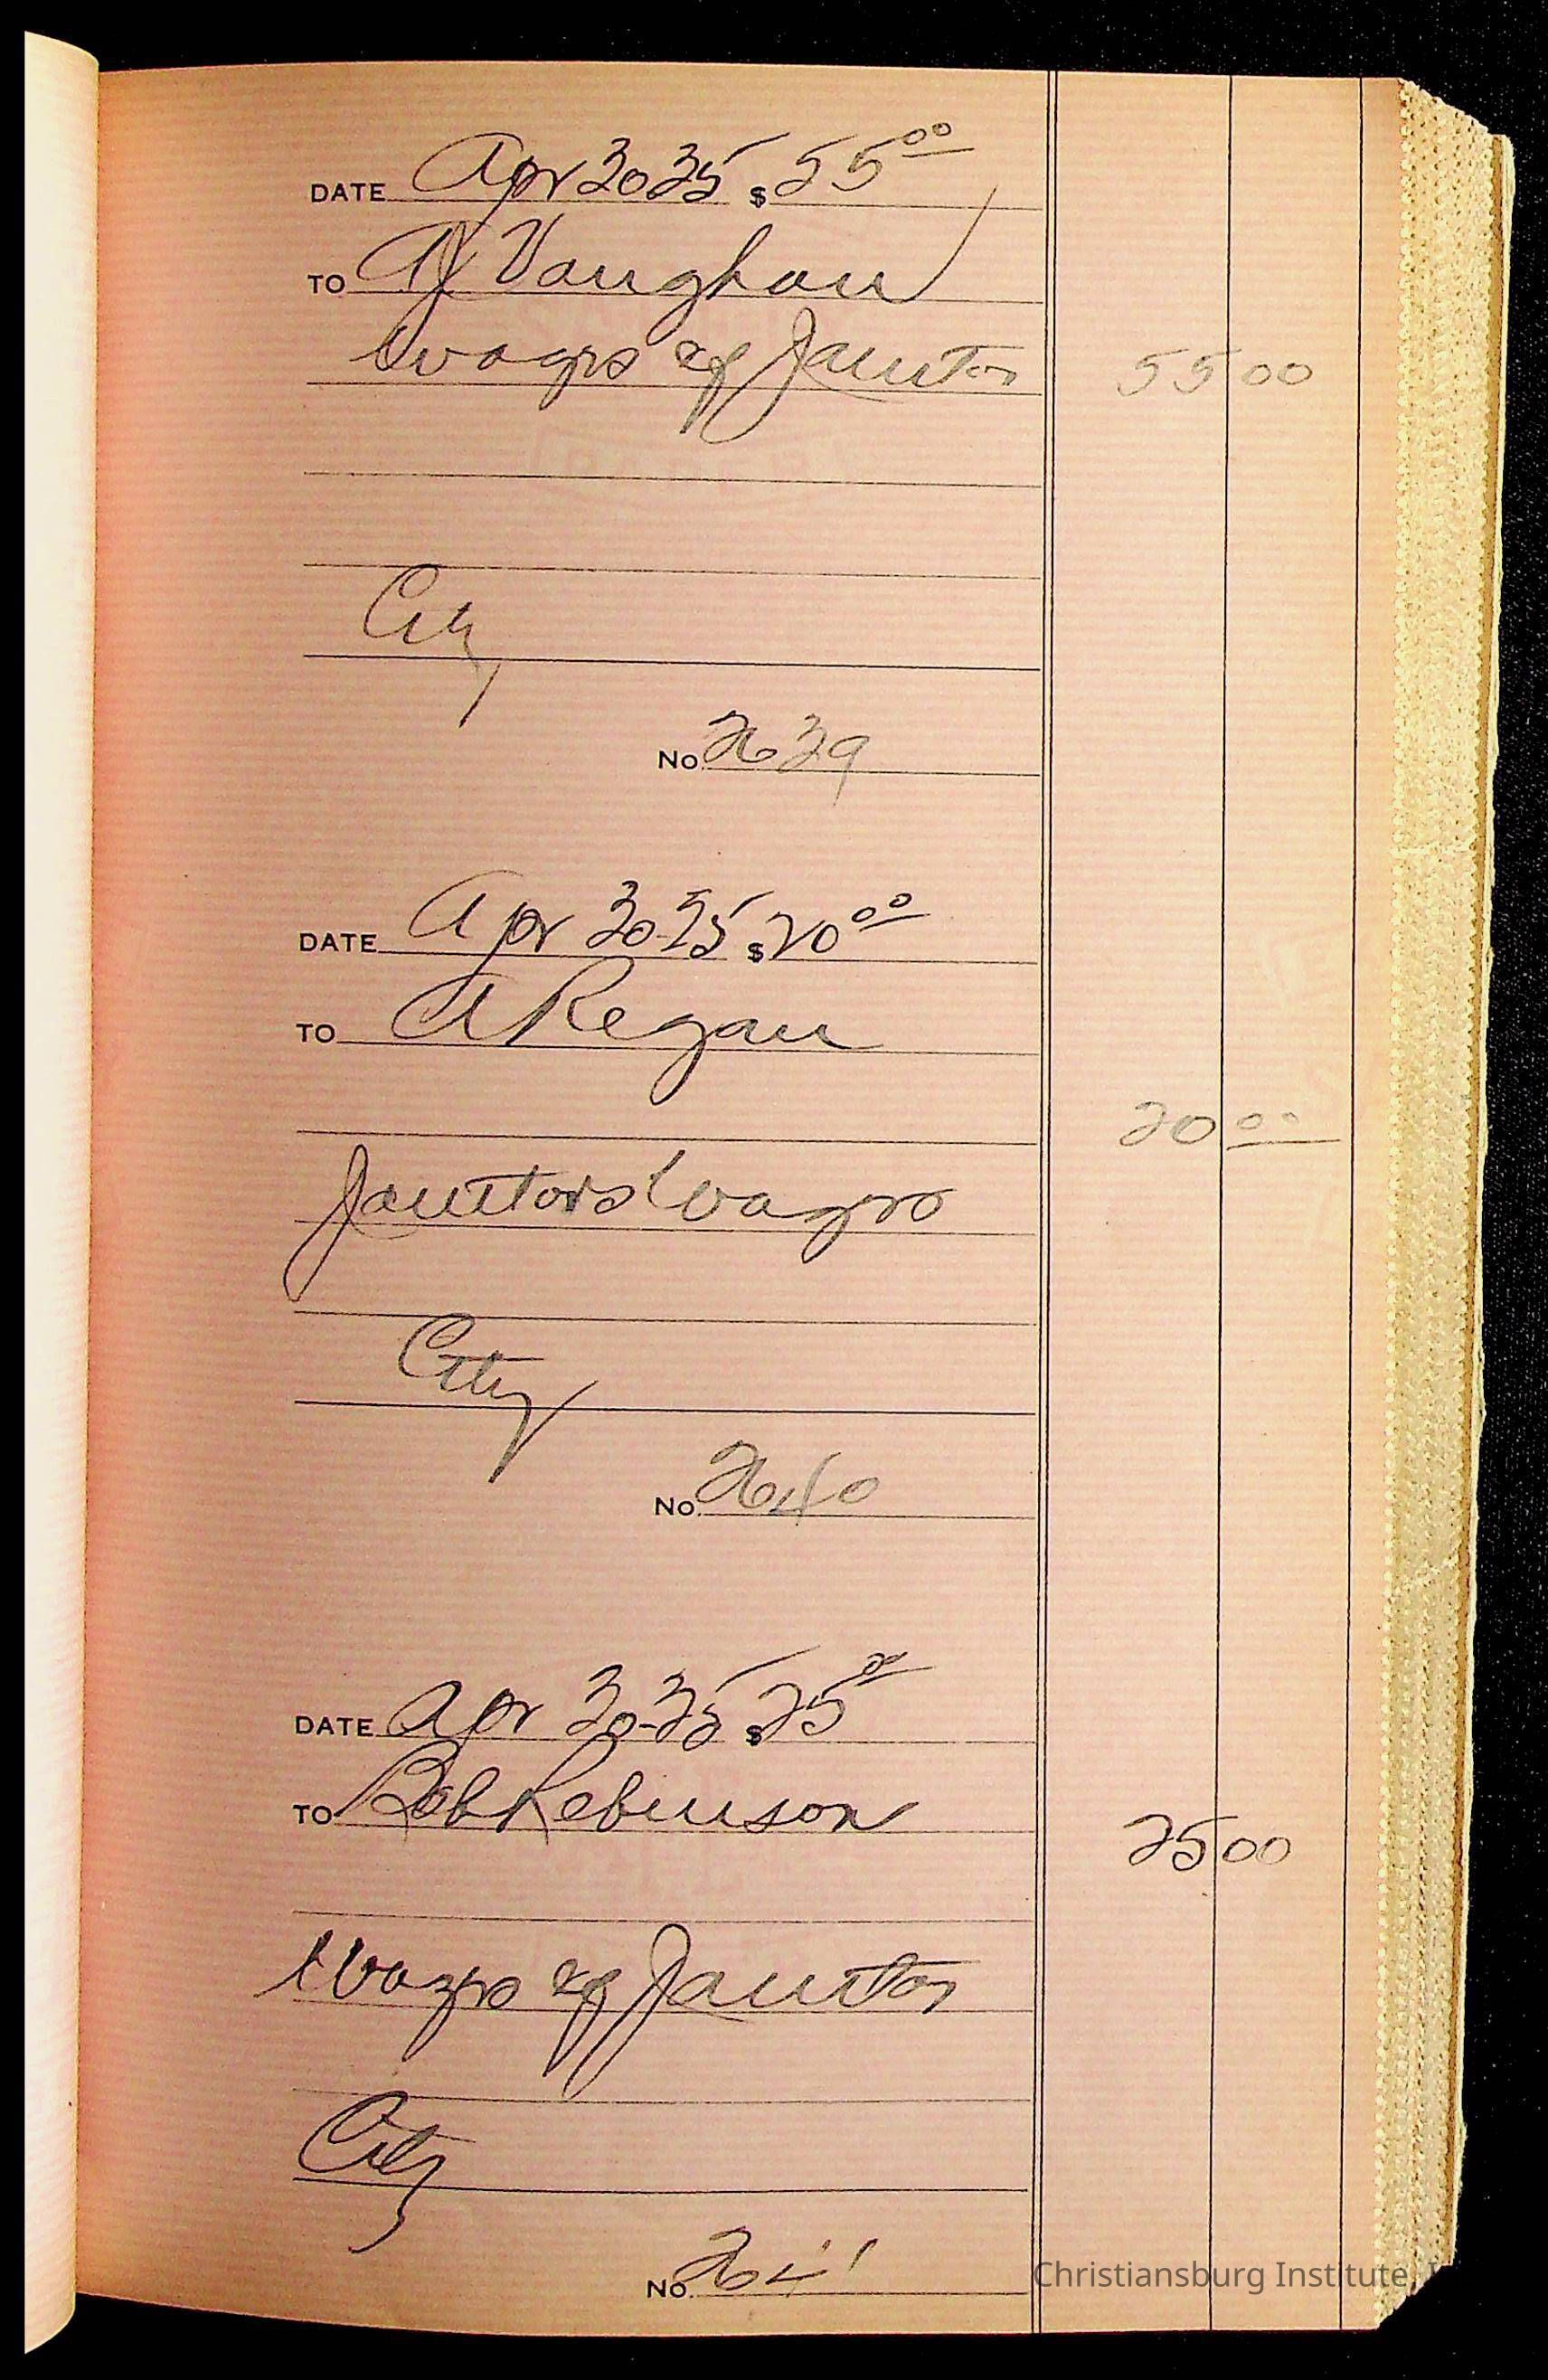 DATE Apr 30 35 $ 55 00
TO A J Vaughan
Wages of Janitor 55 00
City
No. 2639
DATE Apr 30-35 $ 20 00
TO A Regan
20 00
Janitors Wages
City
No. 2640
DATE Apr 30-35 $ 25 00
TO Bob Robinson
25 00
Wages of Janitor
City
No. 2641
Christiansburg Institute,